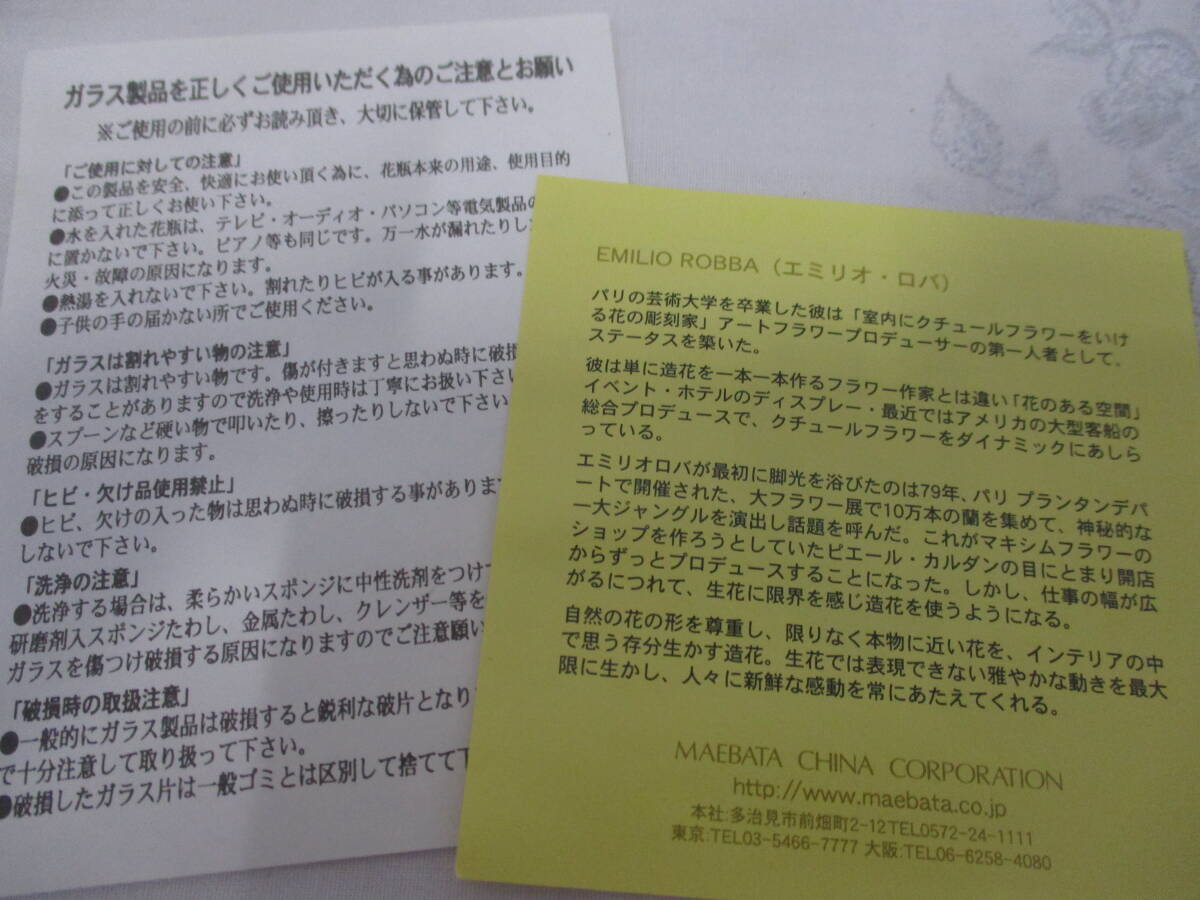 ガラス製品を正しくご使用いただく為のご注意とお願い
※ご使用の前に必ずお読み頂き、大切に保管して下さい。
「ご使用に対しての注意」
●この製品を安全、快適にお使い頂く為に、花瓶本来の用途、使用目的
に添って正しくお使い下さい。
●水を入れた花瓶は、テレビ・オーディオ・パソコン等電気製品の
に置かないで下さい。ピアノ等も同じです。万一水が漏れたりし
火災・故障の原因になります。
●熱湯を入れないで下さい。割れたりヒビが入る事があります。
●子供の手の届かない所でご使用ください。
「ガラスは割れやすい物の注意」
●ガラスは割れやすい物です。傷が付きますと思わぬ時に破損
をすることがありますので洗浄や使用時は丁寧にお扱い下さい
●スプーンなど硬い物で叩いたり、擦ったりしないで下さい
破損の原因になります。
「ヒビ・欠け品使用禁止」
●ヒビ、欠けの入った物は思わぬ時に破損する事がありま
しないで下さい。
「洗浄の注意」
●洗浄する場合は、柔らかいスポンジに中性洗剤をつけ
研磨剤入スポンジたわし、金属たわし、クレンザー等を
ガラスを傷つけ破損する原因になりますのでご注意願い
「破損時の取扱注意」
●一般的にガラス製品は破損すると鋭利な破片となり
で十分注意して取り扱って下さい。
●破損したガラス片は一般ゴミとは区別して捨てて下
EMILIO ROBBA（エミリオ・ロバ）
パリの芸術大学を卒業した彼は「室内にクチュールフラワーをいけ
る花の彫刻家」アートフラワープロデューサーの第一人者として、
ステータスを築いた。
彼は単に造花を一本一本作るフラワー作家とは違い「花のある空間」
イベント・ホテルのディスプレー・最近ではアメリカの大型客船の
総合プロデュースで、クチュールフラワーをダイナミックにあしら
っている。
エミリオロバが最初に脚光を浴びたのは79年、パリ プランタンデパ
ートで開催された、大フラワー展で10万本の蘭を集めて、神秘的な
一大ジャングルを演出し話題を呼んだ。これがマキシムフラワーの
ショップを作ろうとしていたピエール・カルダンの目にとまり開店
からずっとプロデュースすることになった。しかし、仕事の幅が広
がるにつれて、生花に限界を感じ造花を使うようになる。
自然の花の形を尊重し、限りなく本物に近い花を、インテリアの中
で思う存分生かす造花。生花では表現できない雅やかな動きを最大
限に生かし、人々に新鮮な感動を常にあたえてくれる。
MAEBATA CHINA CORPORATION
http://www.maebata.co.jp
本社:多治見市前畑町2-12TEL0572-24-1111
東京:TEL03-5466-7777 大阪:TEL06-6258-4080